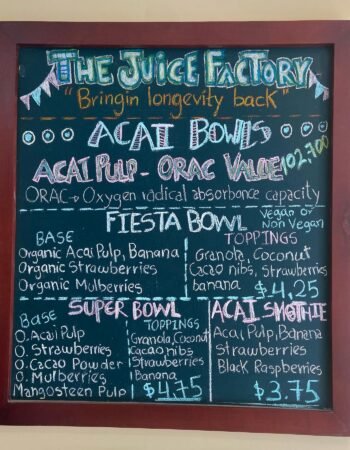 THE JUICE FACTORY
"Bringin longevity back"
ACAI BOWLS
ACAI PULP - ORAC VALUE 102,700
ORAC → Oxygen radical absorbance capacity
FIESTA BOWL
Vegan or
Non Vegan
BASE
Organic Acai Pulp, Banana
Organic Strawberries
Organic Mulberries
TOPPINGS
Granola, Coconut
Cacao nibs, Strawberries
banana
$4.25
SUPER BOWL
Base
O. Acai Pulp
O. Strawberries
O. Cacao Powder
O. Mulberries
Mangosteen Pulp
TOPPINGS
Granola, Coconut
Cacao nibs
Strawberries
Banana
$4.75
ACAI SMOTHIE
Acai Pulp, Banana
Strawberries
Black Raspberries
$3.75